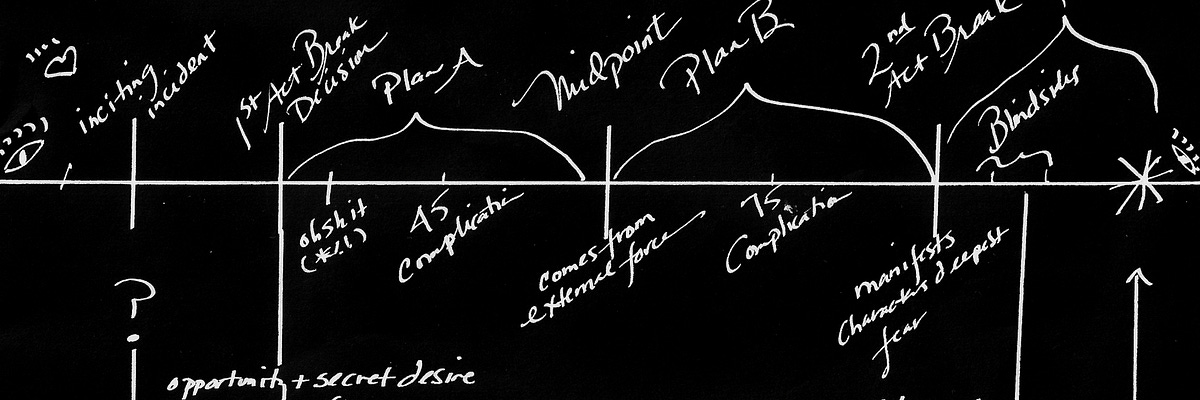 inciting
incident
1st Act Break
Decision
Plan A
Midpoint
Plan B
2nd
Act Break
Blindside
ohshit
(*!.!)
45
Complication
comes from
external force
75
Complication
manifests
characters deepest
fear
?
opportunity + secret desire